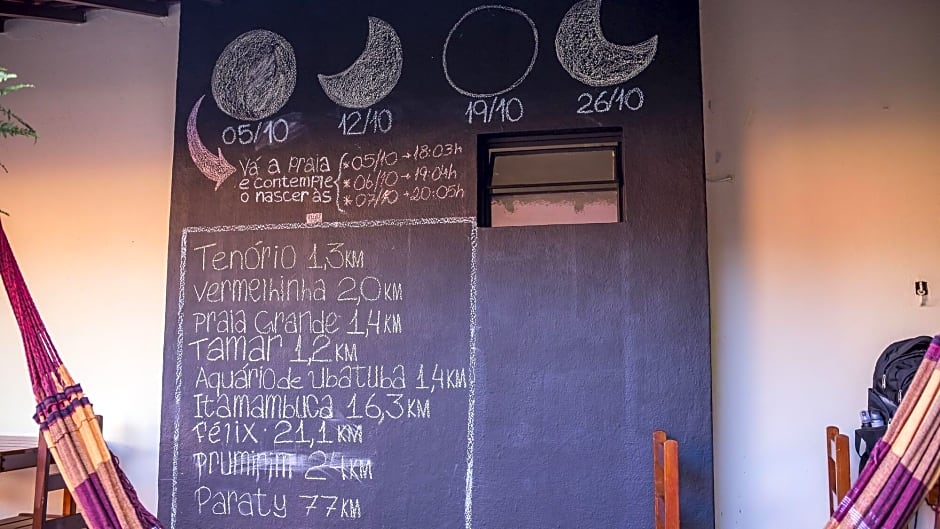 05/10 12/10 19/10 26/10
Vá a Praia * 05/10 → 18:03h
e contemple * 06/10 → 19:04h
o nascer às * 07/10 → 20:05h
Tenório 1,3KM
Vermelhinha 2,0KM
Praia Grande 1,4KM
Tamar 1,2KM
Aquário de Ubatuba 1,4KM
Itamambuca 16,3KM
Félix 21,1KM
Prumirim
Paraty 77KM